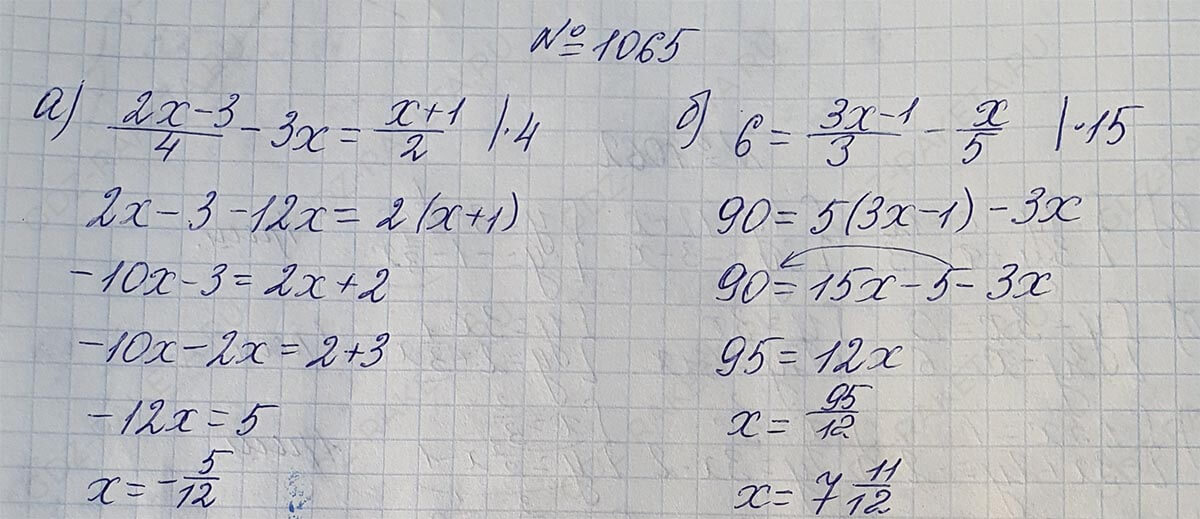 № 1065
а) (2x-3)/4 - 3x = (x+1)/2 |·4
2x - 3 - 12x = 2(x+1)
-10x - 3 = 2x + 2
-10x - 2x = 2 + 3
-12x = 5
x = -5/12
б) 6 = (3x-1)/3 - x/5 |·15
90 = 5(3x-1) - 3x
90 = 15x - 5 - 3x
95 = 12x
x = 95/12
x = 7 11/12